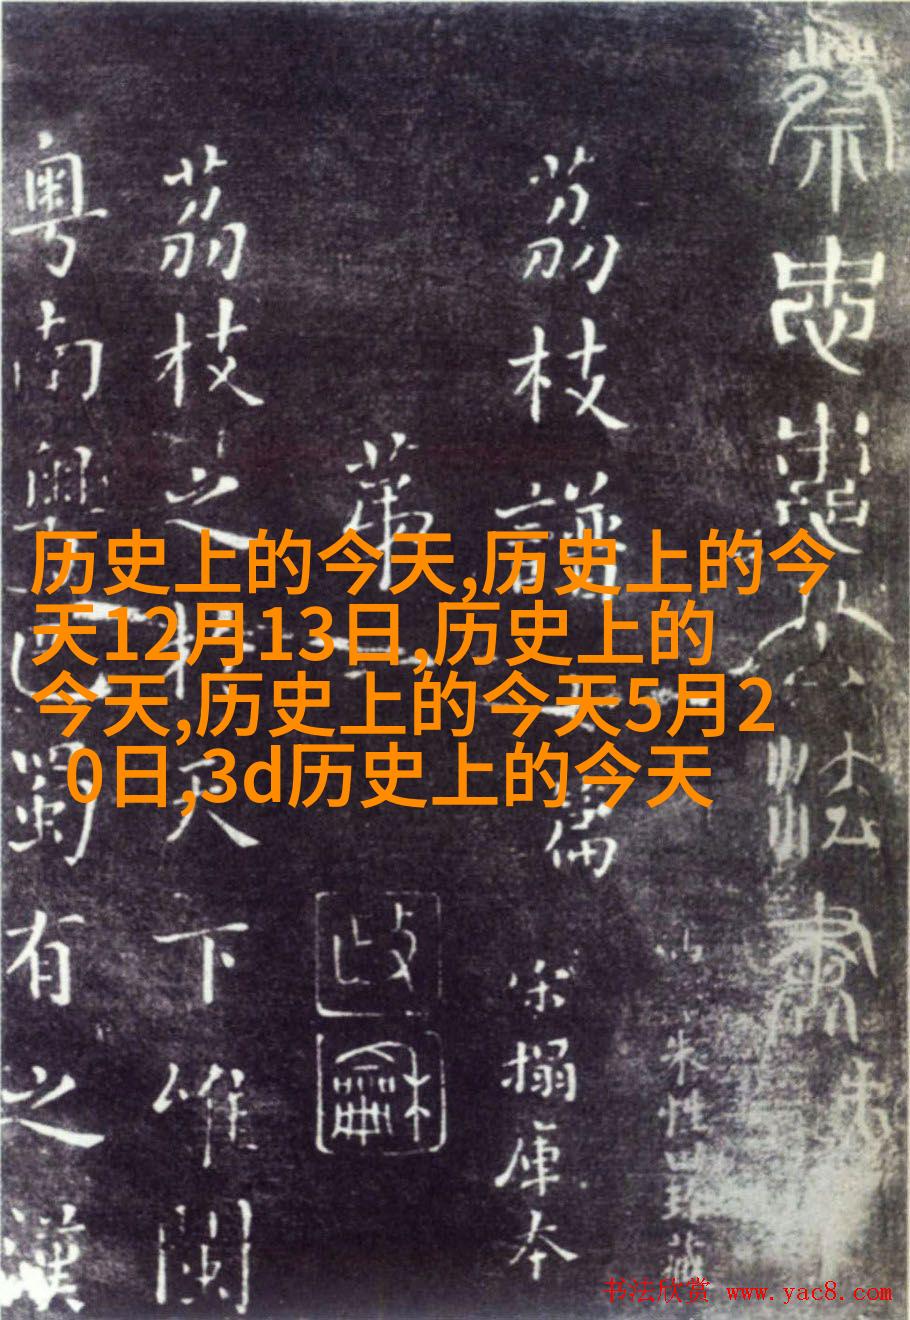 历史上的今天,历史上的今
天12月13日,历史上的
今天,历史上的今天5月2
0日,3d历史上的今天
蔡忠惠公法書
荔枝譜 篇
宋搨庫本
第一
荔枝之於天下唯閩
粵南粵巴蜀有之漢
书法欣赏 www.yac8.com